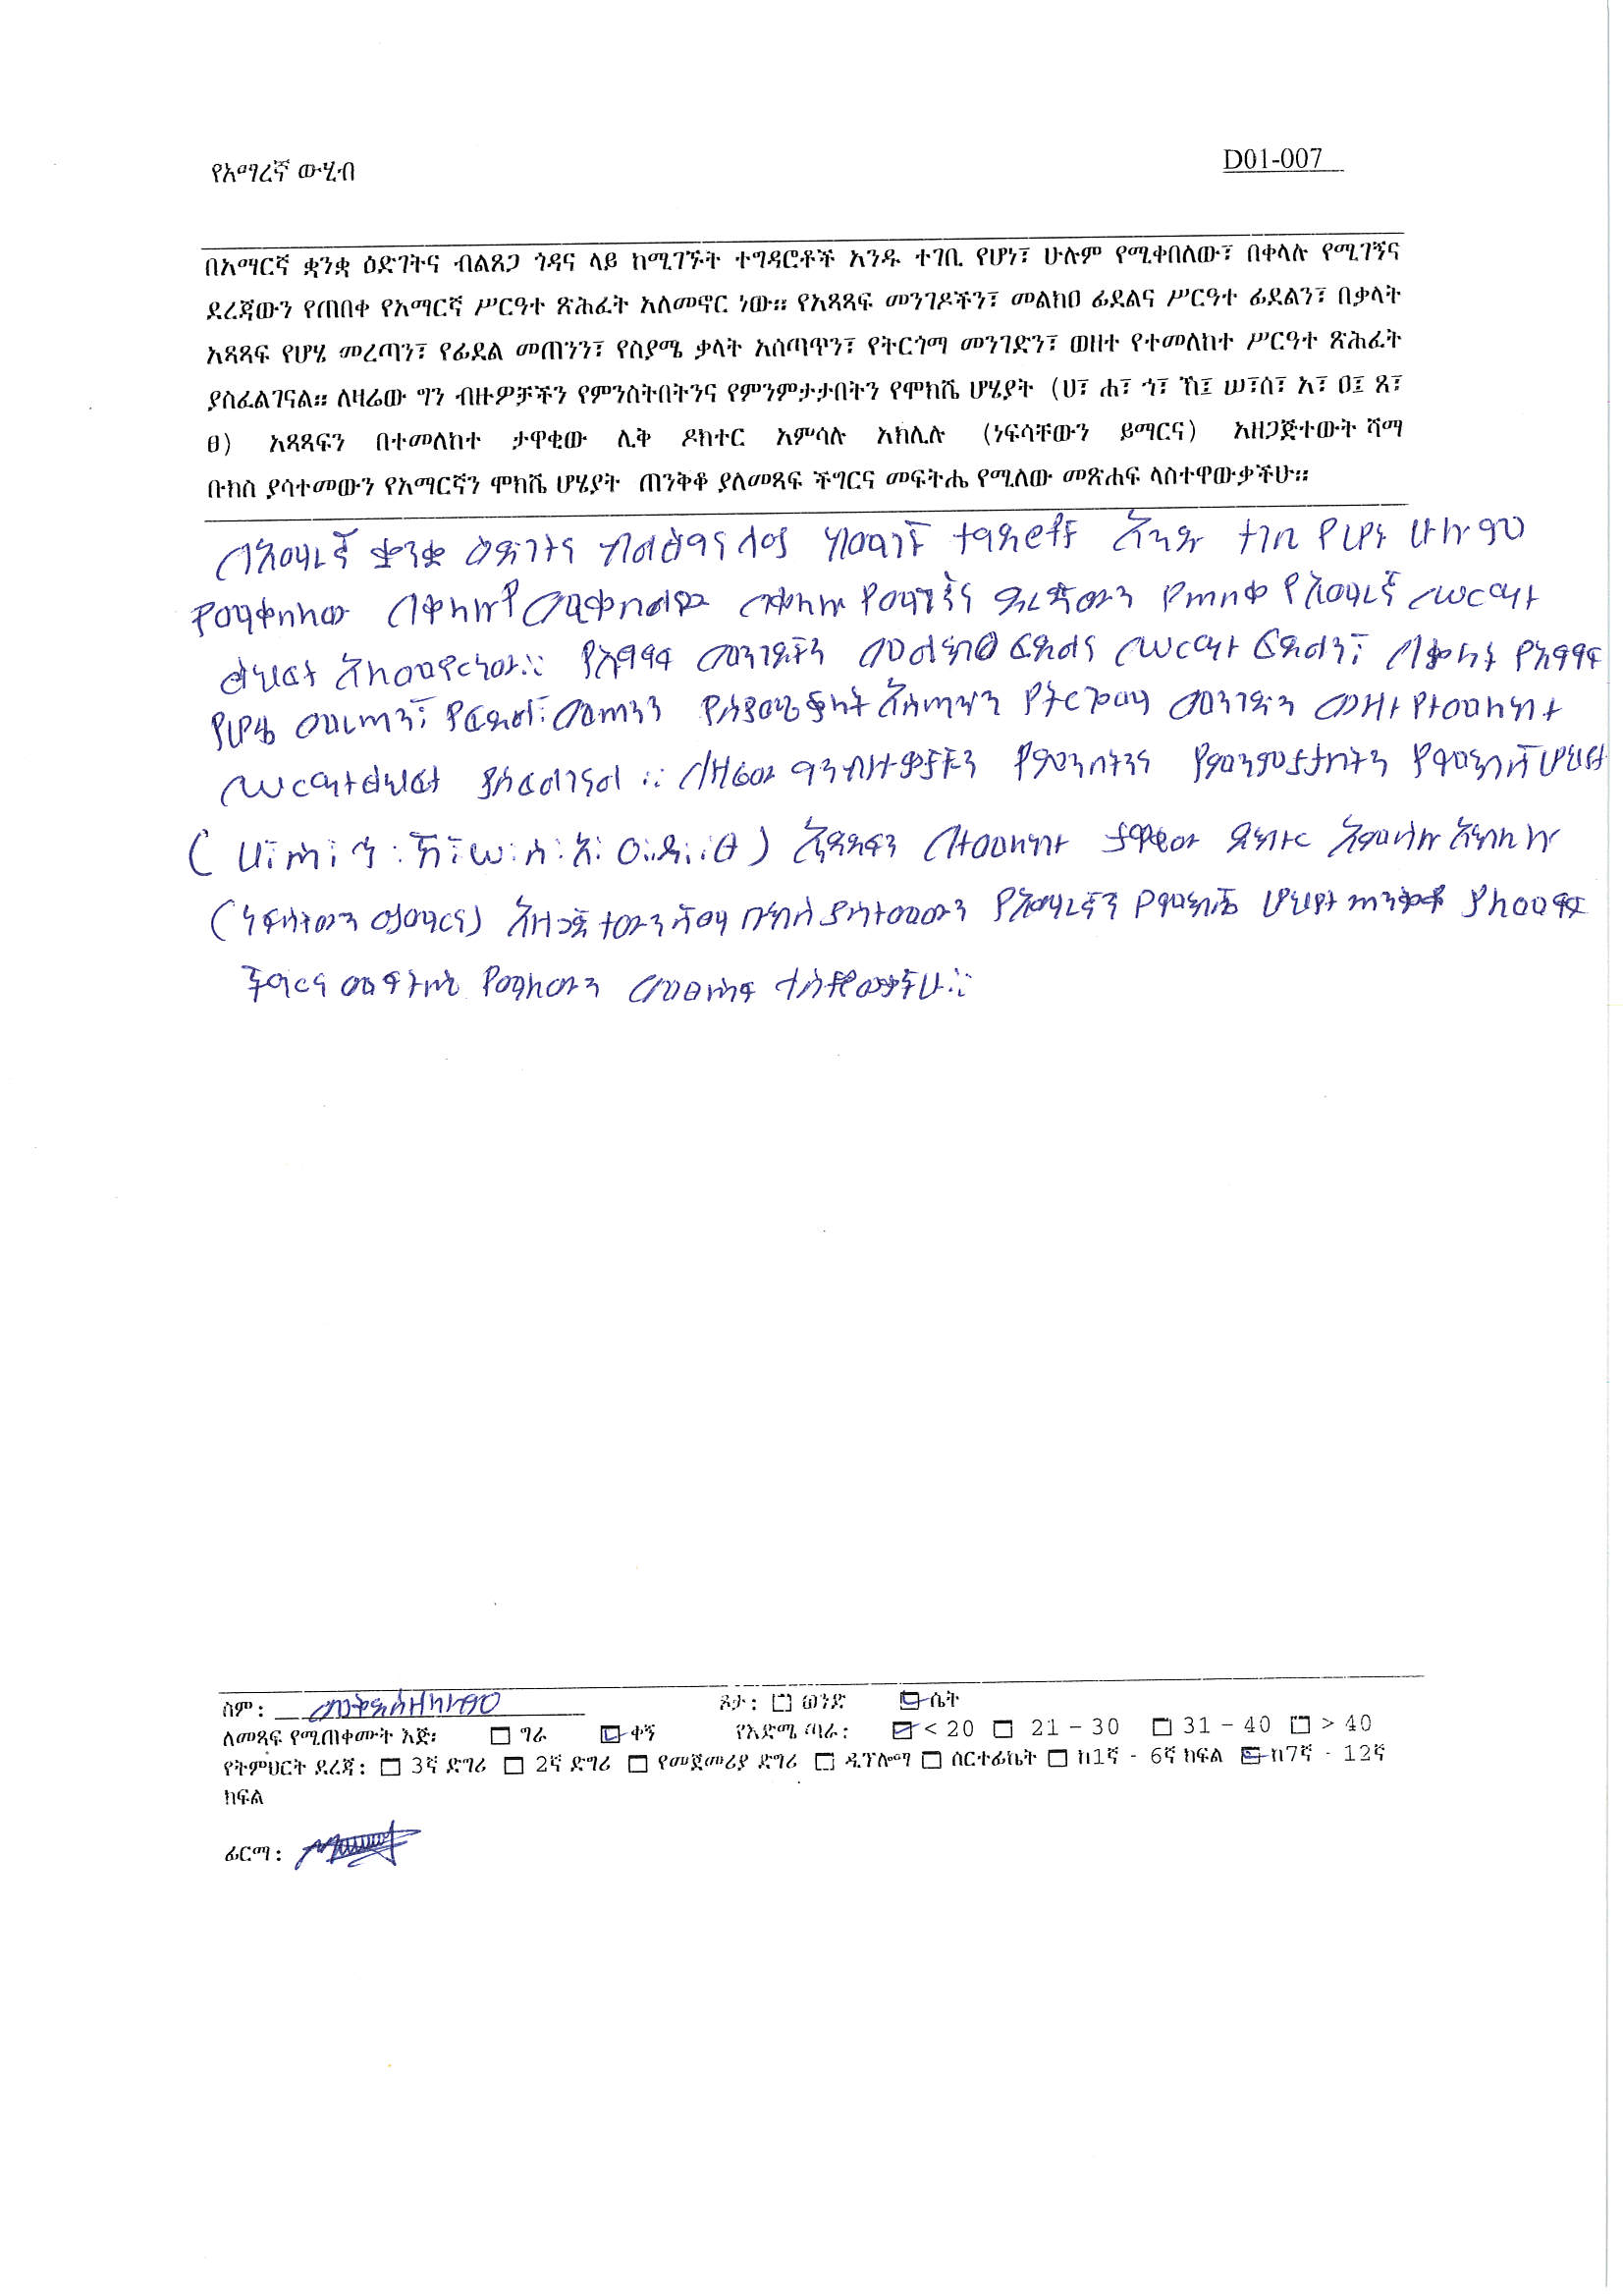 የአማረኛ ውሂብ
D01-007
በአማርኛ ቋንቋ ዕድገትና ብልጸጋ ጎዳና ላይ ከሚገኙት ተግዳሮቶች አንዱ ተገቢ የሆነ፣ ሁሉም የሚቀበለው፣ በቀላሉ የሚገኝና
ደረጃውን የጠበቀ የአማርኛ ሥርዓተ ጽሕፈት አለመኖር ነው። የአጻጻፍ መንገዶችን፣ መልክዐ ፊደልና ሥርዓተ ፊደልን፣ በቃላት
አጻጻፍ የሆሄ መረጣን፣ የፊደል መጠንን፣ የስያሜ ቃላት አሰጣጥን፣ የትርጎማ መንገድን፣ ወዘተ የተመለከተ ሥርዓተ ጽሕፈት
ያስፈልገናል። ለዛሬው ግን ብዙዎቻችን የምንስትበትንና የምንምታታበትን የሞክሼ ሆሄያት (ሀ፣ ሐ፣ ኀ፣ ኸ፤ ሠ፣ሰ፣ አ፣ ዐ፤ ጸ፣
ፀ) አጻጻፍን በተመለከተ ታዋቂው ሊቅ ዶክተር አምሳሉ አክሊሉ (ነፍሳቸውን ይማርና) አዘጋጅተውት ሻማ
ቡክስ ያሳተመውን የአማርኛን ሞክሼ ሆሄያት ጠንቅቆ ያለመጻፍ ችግርና መፍትሔ የሚለው መጽሐፍ ላስተዋውቃችሁ።
በአማረኛ ቋንቋ ዕድገትና ብልፅግና ላይ ከሚገኙ አንዱ ተገቢ የሆነ ሁሉም
የሚቀበለው በቀላሉ የሚገኝና ደረጃውን የጠበቀ የአማረኛ ሠርዓተ
አለመኖር ነው። የአፃፃፍ መንገዶችን መልክዐ ፊደልና ሠርዓተ ፊደልን፣ በቃላት የአፃፃፍ
የሆሄ መረጣን፣ የፊደል፣ መጠንን የስያሜ ቃላት አሰጣጥን የትርጉማ መንገድን ወዘተ የተመለከተ
ሠርዓተ ያስፈልገናል ። ለዛሬው ግን የምንስትንና የምንምታታበትን
( ሀ፣ ሐ፣ ኀ፣ ኸ፣ ሠ፣ ሰ፣ አ፣ ዐ፣ ጸ፣ ፀ ) አጻጻፍን በተመለከተ ታዋቂው ዶክተር አምሳሉ አክሊሉ
(ነፍሳቸውን ይማርና) ሻማ ቡክስ ያሳተመውን የአማረኛን የሞክሼ ሆሄያት ጠንቅቆ ያለመፃፍ
ችግርና መፍትሔ የሚለውን መፀሐፍ
ስም: 
ጾታ: ወንድ ሴት
ለመጻፍ የሚጠቀሙት እጅ: ግራ ቀኝ የእድሜ ጣራ: < 20 21 – 30 31 – 40 > 40
የትምህርት ደረጃ: 3ኛ ድግሪ 2ኛ ድግሪ የመጀመሪያ ድግሪ ዲፕሎማ ሰርተፊኬት ከ1ኛ - 6ኛ ክፍል ከ7ኛ - 12ኛ
ክፍል
ፊርማ: